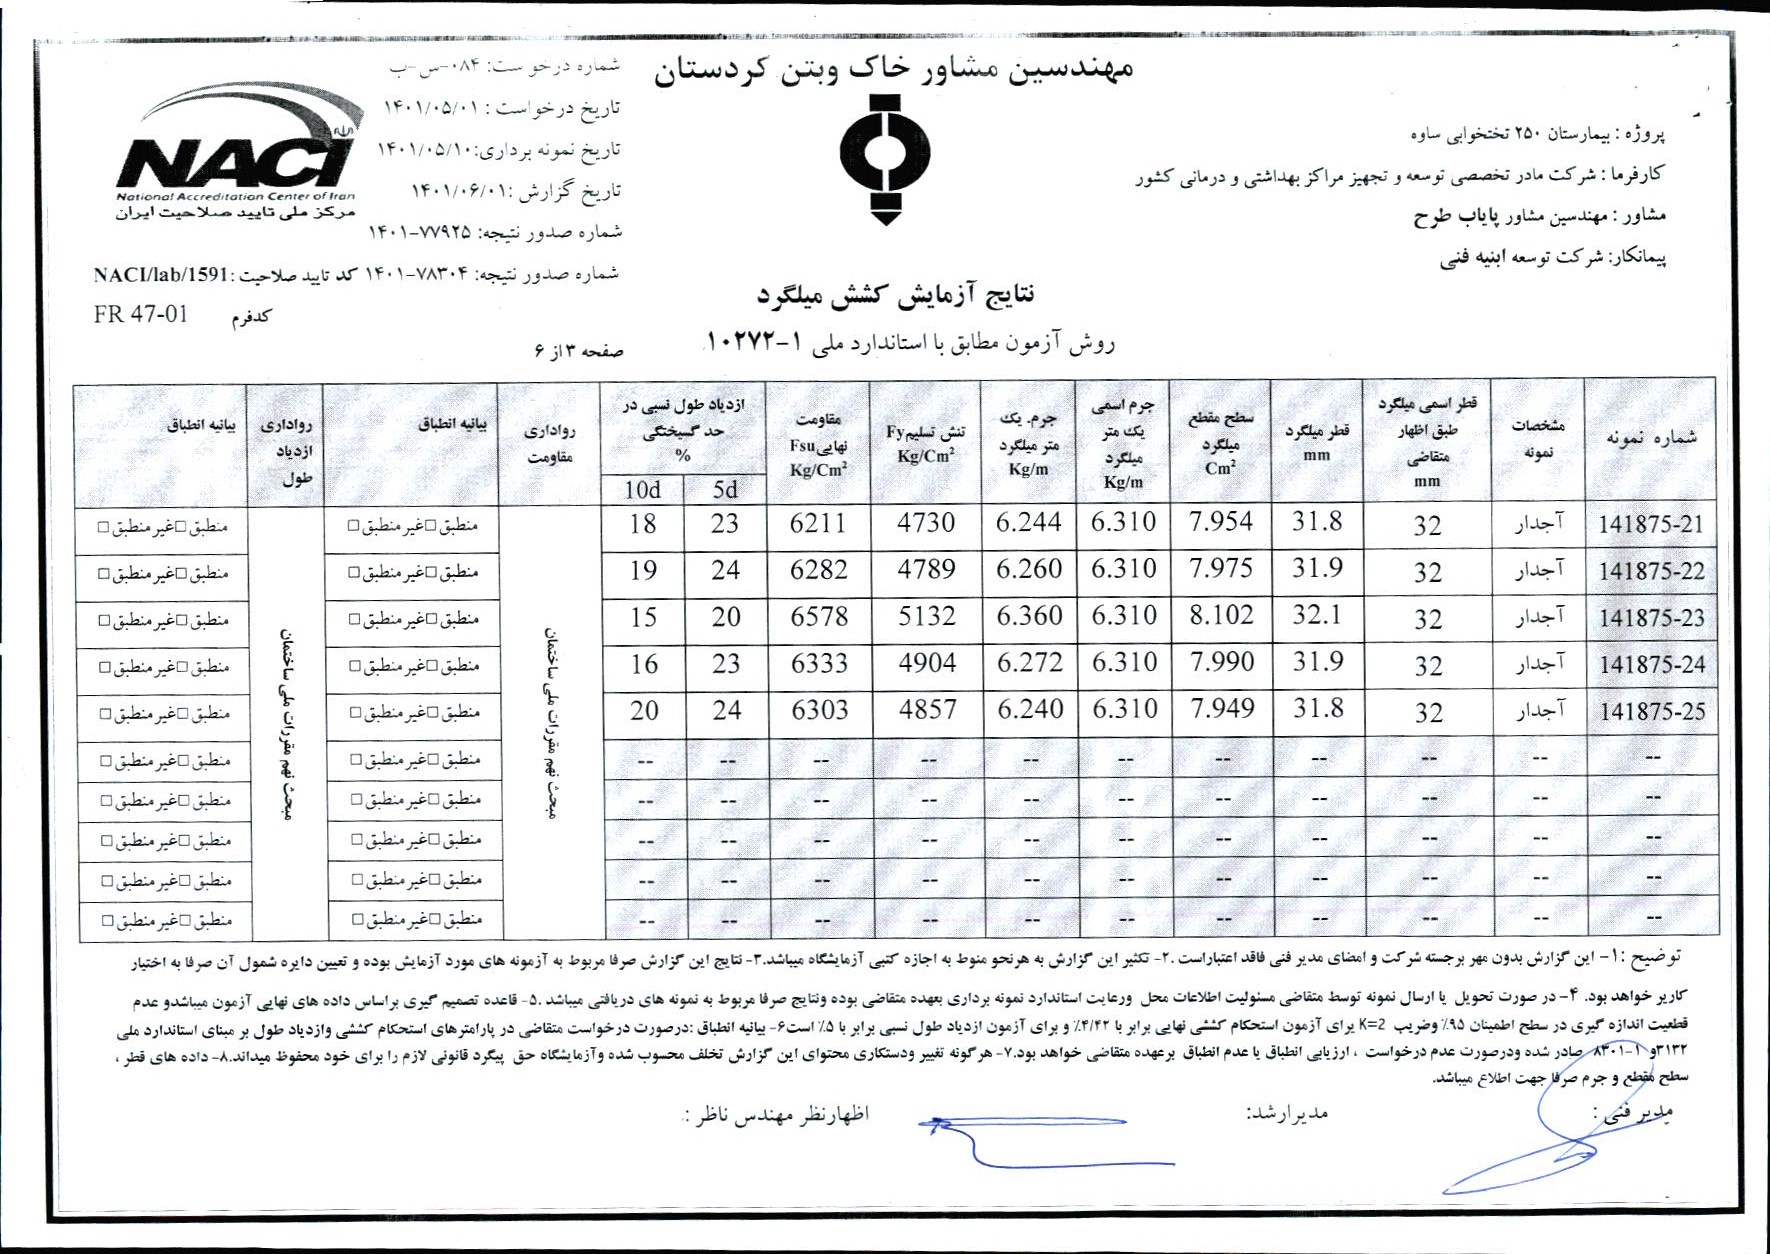 مهندسین مشاور خاک وبتن کردستان
پروژه : بیمارستان ۲۵۰ تختخوابی ساوه
کارفرما : شرکت مادر تخصصی توسعه و تجهیز مراکز بهداشتی و درمانی کشور
مشاور : مهندسین مشاور پایاب طرح
پیمانکار: شرکت توسعه ابنیه فنی
شماره درخوست: ۰۸۴-س-ب
تاریخ درخواست : ۱۴۰۱/۰۵/۰۱
تاریخ نمونه برداری:۱۴۰۱/۰۵/۱۰
تاریخ گزارش :۱۴۰۱/۰۶/۰۱
شماره صدور نتیجه: ۷۷۹۲۵-۱۴۰۱
شماره صدور نتیجه: ۷۸۳۰۴-۱۴۰۱ کد تایید صلاحیت :NACI/lab/1591
NACI
National Accreditation Center of Iran
مرکز ملی تایید صلاحیت ایران
کدفرم FR 47-01
نتایج آزمایش کشش میلگرد
روش آزمون مطابق با استاندارد ملی ۱-۱۰۲۷۲
صفحه ۳ از ۶
شماره نمونه | مشخصات نمونه | قطر اسمی میلگرد طبق اظهار متقاضی mm | قطر میلگرد mm | سطح مقطع میلگرد Cm² | جرم اسمی یک متر میلگرد Kg/m | جرم. یک متر میلگرد Kg/m | تنش تسلیم Fy Kg/Cm² | مقاومت نهایی Fsu Kg/Cm² | ازدیاد طول نسبی در حد گسیختگی % 5d 10d | رواداری مقاومت | بیانیه انطباق | رواداری ازدیاد طول | بیانیه انطباق
141875-21 آجدار 32 31.8 7.954 6.310 6.244 4730 6211 23 18 منطبق□غیر منطبق□ منطبق□غیر منطبق□
141875-22 آجدار 32 31.9 7.975 6.310 6.260 4789 6282 24 19 منطبق□غیر منطبق□ منطبق□غیر منطبق□
141875-23 آجدار 32 32.1 8.102 6.310 6.360 5132 6578 20 15 منطبق□غیر منطبق□ منطبق□غیر منطبق□
141875-24 آجدار 32 31.9 7.990 6.310 6.272 4904 6333 23 16 منطبق□غیر منطبق□ منطبق□غیر منطبق□
141875-25 آجدار 32 31.8 7.949 6.310 6.240 4857 6303 24 20 منطبق□غیر منطبق□ منطبق□غیر منطبق□
-- -- -- -- -- -- -- -- -- -- -- منطبق□غیر منطبق□ منطبق□غیر منطبق□
-- -- -- -- -- -- -- -- -- -- -- منطبق□غیر منطبق□ منطبق□غیر منطبق□
-- -- -- -- -- -- -- -- -- -- -- منطبق□غیر منطبق□ منطبق□غیر منطبق□
-- -- -- -- -- -- -- -- -- -- -- منطبق□غیر منطبق□ منطبق□غیر منطبق□
-- -- -- -- -- -- -- -- -- -- -- منطبق□غیر منطبق□ منطبق□غیر منطبق□
مبحث نهم مقررات ملی ساختمان
مبحث نهم مقررات ملی ساختمان
توضیح :۱- این گزارش بدون مهر برجسته شرکت و امضای مدیر فنی فاقد اعتباراست .۲- تکثیر این گزارش به هرنحو منوط به اجازه کتبی آزمایشگاه میباشد.۳- نتایج این گزارش صرفا مربوط به آزمونه های مورد آزمایش بوده و تعیین دایره شمول آن صرفا به اختیار
کاربر خواهد بود. ۴- در صورت تحویل یا ارسال نمونه توسط متقاضی مسئولیت اطلاعات محل ورعایت استاندارد نمونه برداری بعهده متقاضی بوده ونتایج صرفا مربوط به نمونه های دریافتی میباشد .۵- قاعده تصمیم گیری براساس داده های نهایی آزمون میباشدو عدم
قطعیت اندازه گیری در سطح اطمینان ۹۵٪ وضریب K=2 برای آزمون استحکام کششی نهایی برابر با ۴/۴۲٪ و برای آزمون ازدیاد طول نسبی برابر با ۵٪ است۶- بیانیه انطباق :درصورت درخواست متقاضی در پارامترهای استحکام کششی وازدیاد طول بر مبنای استاندارد ملی
۳۱۳۲و ۱-۸۳۰۱ صادر شده ودرصورت عدم درخواست ، ارزیابی انطباق یا عدم انطباق برعهده متقاضی خواهد بود.۷- هرگونه تغییر ودستکاری محتوای این گزارش تخلف محسوب شده وآزمایشگاه حق پیگرد قانونی لازم را برای خود محفوظ میداند.۸- داده های قطر ،
سطح مقطع و جرم صرفا جهت اطلاع میباشد.
مدیر فنی :
مدیرارشد:
اظهارنظر مهندس ناظر :